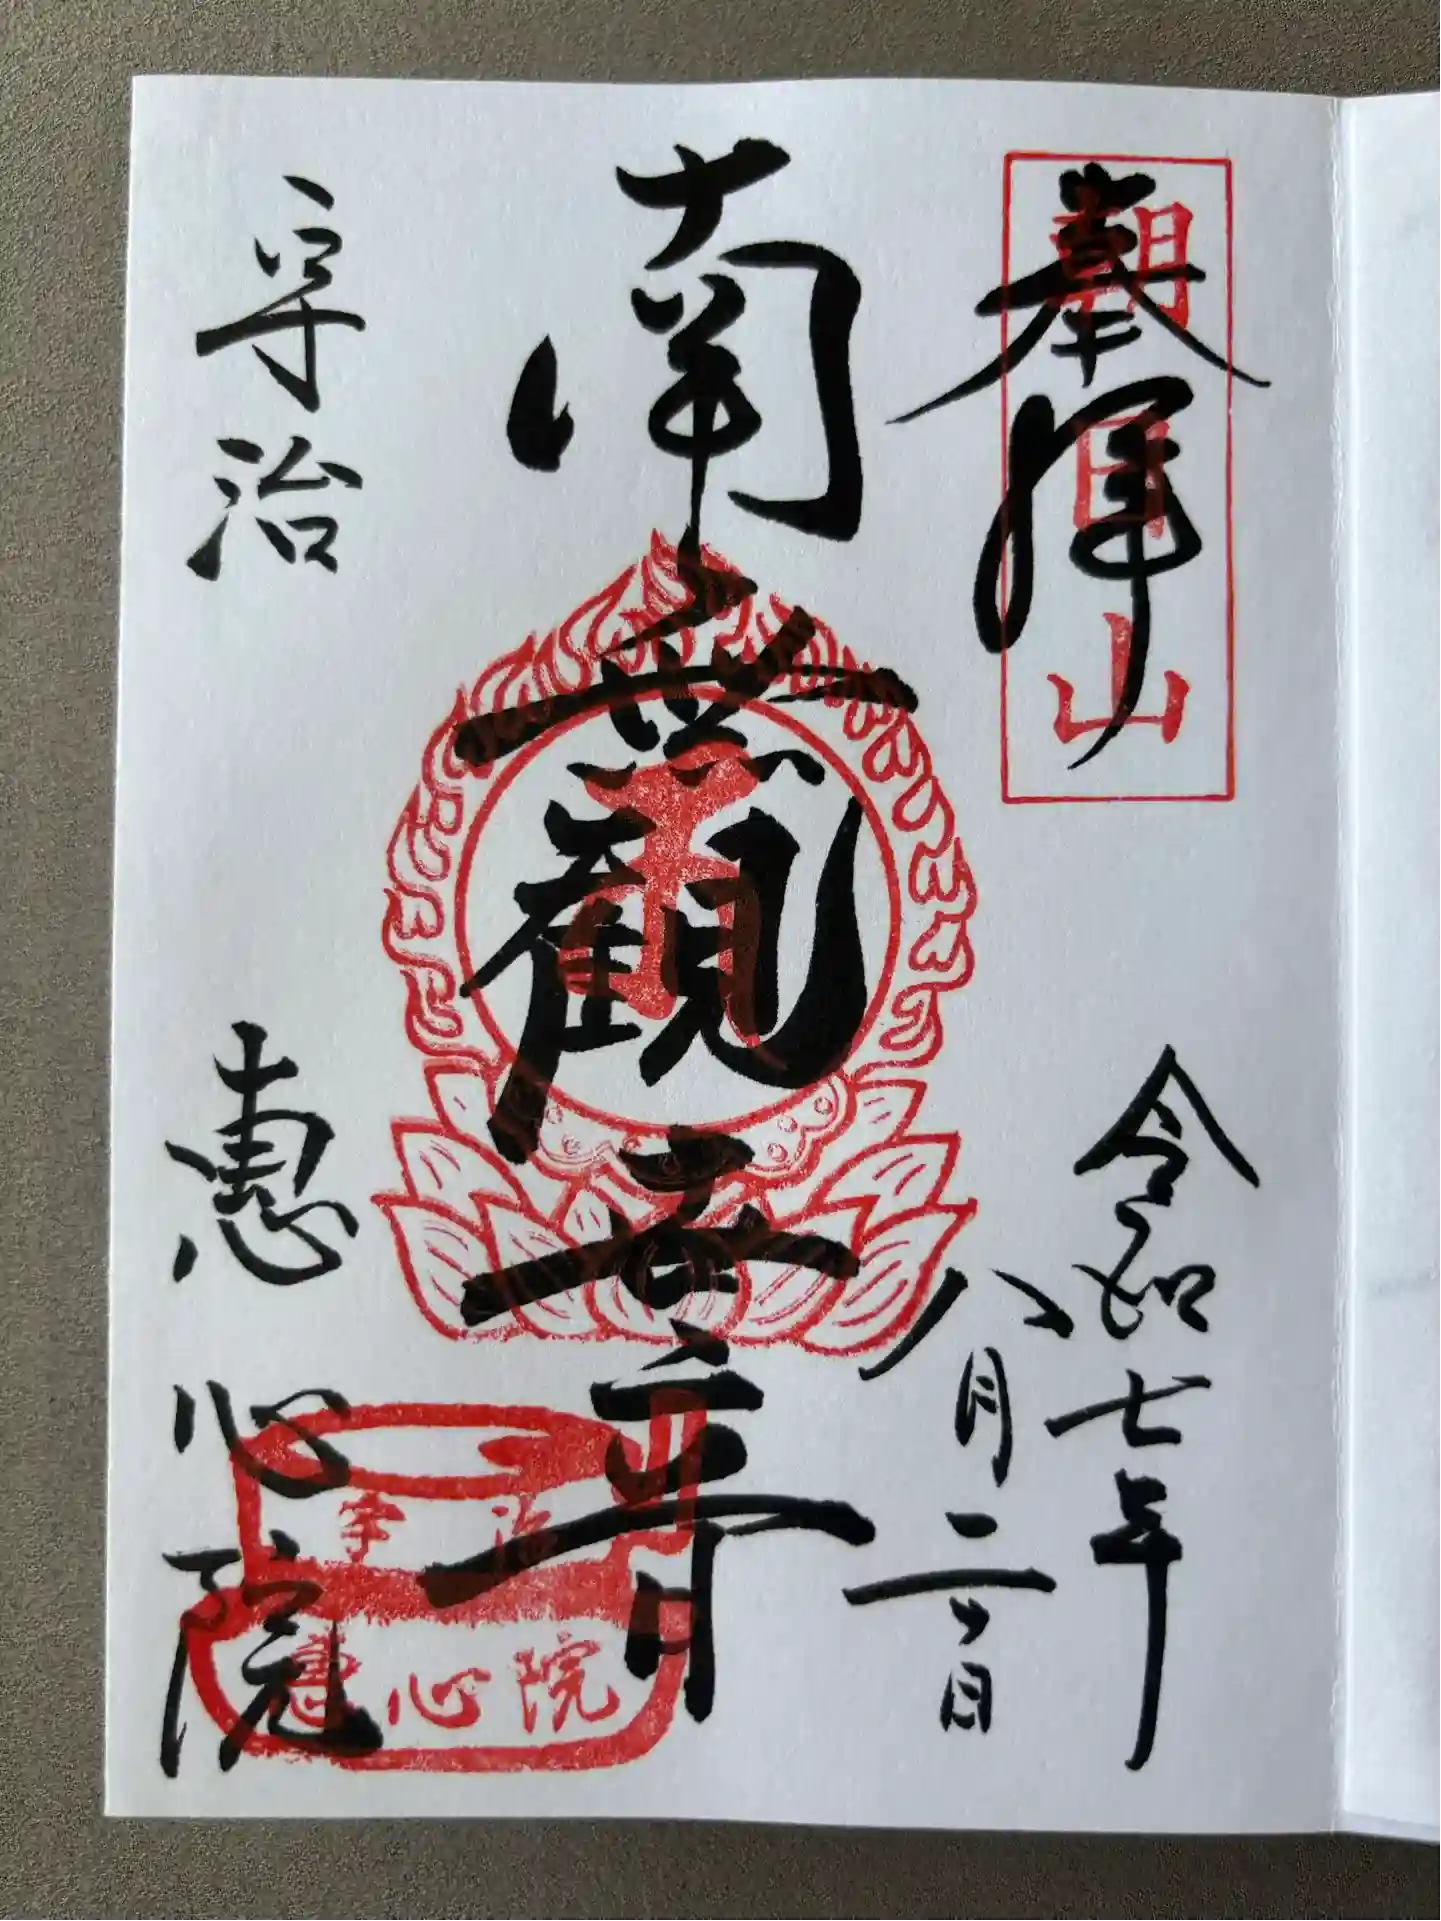 奉拝
朝日山
令和七年
八月二日
南無觀世音
宇治
恵心院
宇治
恵心院